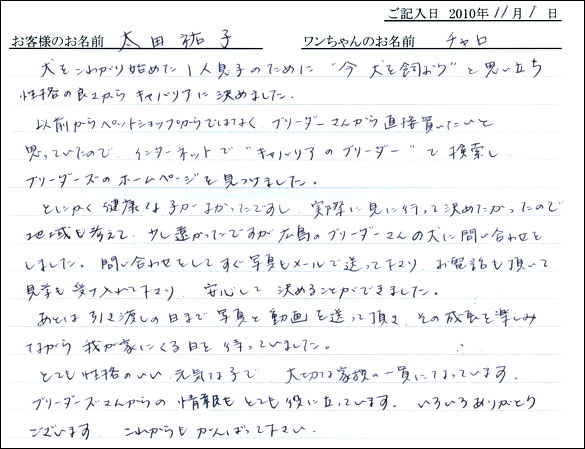 ご記入日 2010年 11月 1日
お客様のお名前 太田祐子 ワンちゃんのお名前 チャロ
犬をこわがり始めた1人息子のために"今犬を飼おう"と思い立ち
性格の良さからキャバリアに決めました。
以前からペットショップからではなく、ブリーダーさんから直接買いたいと
思っていたので、インターネットで"キャバリアのブリーダー"で検索し
ブリーダーズのホームページを見つけました。
とにかく健康な子がよかったですし、実際に見に行って決めたかったので
地域も考えて、少し遠かったですが広島のブリーダーさんの犬に問い合わせを
しました。問い合わせをしてすぐ写真もメールで送って下さり、お電話も頂いて
見学も受け入れて下さり、安心して決めることができました。
あとは引き渡しの日まで写真と動画を送って頂き、その成長を楽しみ
ながら我が家にくる日を待っていました。
とても性格のいい、元気な子で、大切な家族の一員になっています。
ブリーダーズさんからの情報もとても役に立っています。いろいろありがとう
ございます。これからもがんばって下さい。